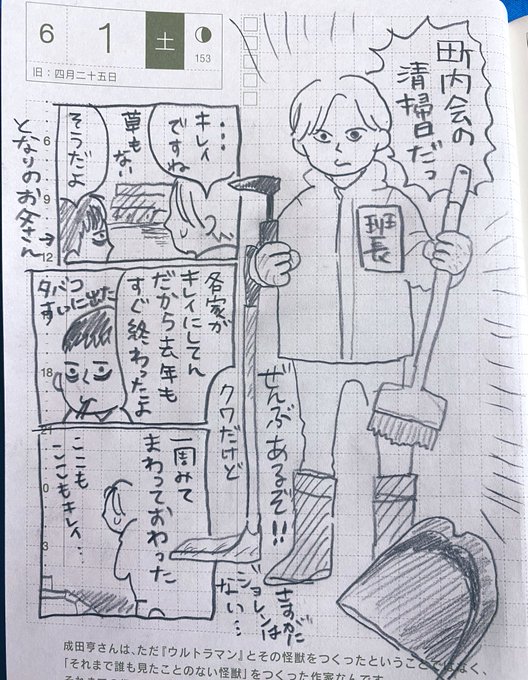 6
1
土
153
旧：四月二十五日
町内会の
清掃日だっ
班長
ぜんぶあるぞ!!
クワだけど
さすがに
ジョレンは
ない…
…キレイ
ですね
草も
ない
そうだよ
となりのお父さん
各家が
キレイにしてん
だから去年も
すぐ終わったよ
タバコ
すいに出た
一周みて
まわっておわった
ここも
ここもキレイ…
6
9
12
18
21
0
3
成田亨さんは、ただ『ウルトラマン』とその怪獣をつくったということではなく、
「それまで誰も見たことのない怪獣」をつくった作家なんです